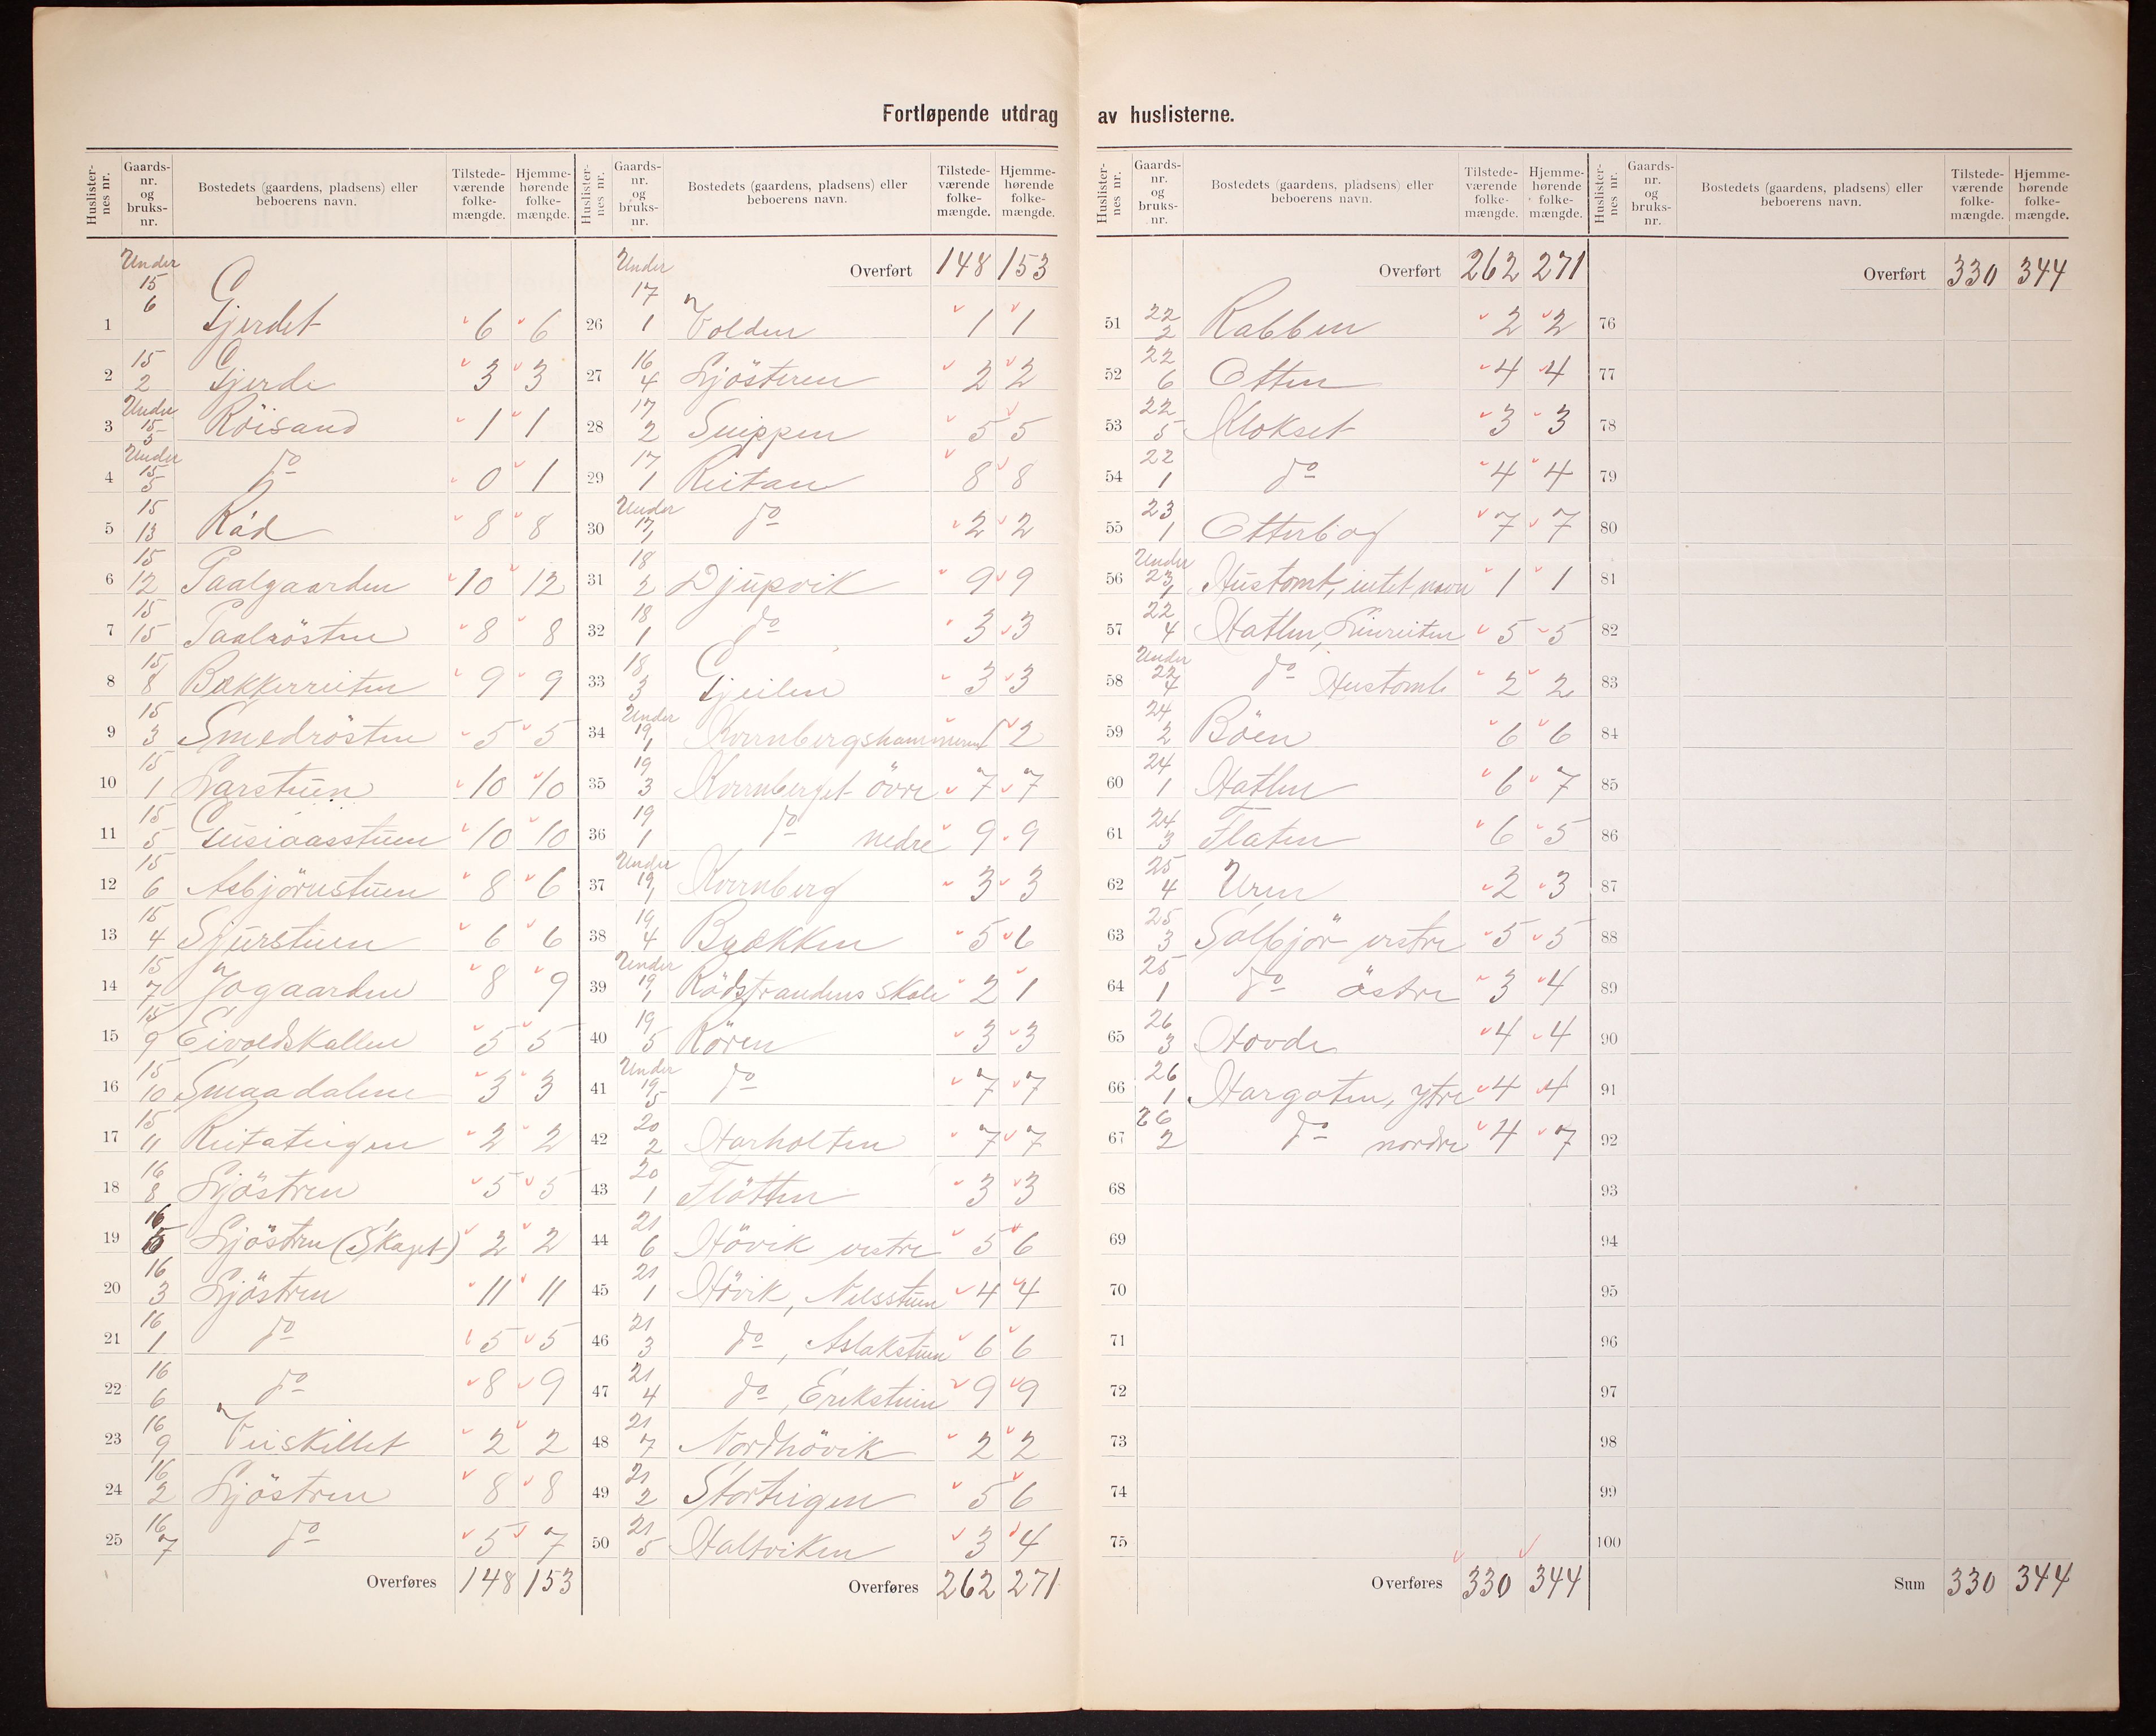 Fortløpende utdrag av huslisterne.
Huslisternes nr. Gaards-nr. og bruks-nr. Bostedets (gaardens, pladsens) eller beboerens navn. Tilstede-værende folke-mængde. Hjemme-hørende folke-mængde.
1 Under 15 6 Gjerdet 6 6
2 15 2 Gjerde 3 3
3 Under 15 3 Röisand 1 1
4 Under 15 5 do 0 1
5 15 13 Råd 8 8
6 15 12 Paalgaarden 10 12
7 15 15 Paalrösten 8 8
8 15 8 Bakkerreiten 9 9
9 15 3 Smedrösten 5 5
10 15 1 Larstuen 10 10
11 15 5 Gusiaasstuen 10 10
12 15 6 Asbjörnstuen 8 6
13 15 4 Sjurstuen 6 6
14 15 7 Jogaarden 8 9
15 15 9 Eivoldskallen 5 5
16 15 10 Smaadalene 3 3
17 15 11 Reitateigen 2 2
18 16 8 Ljöstren 5 5
19 16 5 Ljöstren (Skaget) 2 2
20 16 3 Ljöstren 11 11
21 16 1 do 5 5
22 16 6 do 8 9
23 16 9 Veiskillet 2 2
24 16 2 Ljöstren 8 8
25 16 7 do 5 7
Overføres 148 153
Huslisternes nr. Gaards-nr. og bruks-nr. Bostedets (gaardens, pladsens) eller beboerens navn. Tilstede-værende folke-mængde. Hjemme-hørende folke-mængde.
Overført 148 153
26 Under 17 1 Volden 1 1
27 16 4 Ljösteren 2 2
28 17 2 Snippen 5 5
29 17 1 Reitan 8 8
30 Under 17 1 do 2 2
31 18 2 Djupvik 9 9
32 18 1 do 3 3
33 18 3 Gjeilen 3 3
34 Under 19 1 Kvernbergshammeren 1 2
35 19 3 Kvernberget övre 7 7
36 19 1 do nedre 9 9
37 Under 19 1 Kvernberg 3 3
38 19 4 Bækken 5 6
39 Under 19 1 Rödstrandens skole 2 1
40 19 5 Rören 3 3
41 Under 19 5 do 7 7
42 20 2 Harholten 7 7
43 20 1 Flötten 3 3
44 21 6 Hövik vestre 5 6
45 21 1 Hövik, Nilsstuen 4 4
46 21 3 do, Aslakstuen 6 6
47 21 4 do, Erikstuen 9 9
48 21 7 Nordhövik 2 2
49 21 2 Storteigen 5 6
50 21 5 Haltviken 3 4
Overføres 262 271
Huslisternes nr. Gaards-nr. og bruks-nr. Bostedets (gaardens, pladsens) eller beboerens navn. Tilstede-værende folke-mængde. Hjemme-hørende folke-mængde.
Overført 262 271
51 22 2 Rabben 2 2
52 22 6 Otten 4 4
53 22 5 Klokset 3 3
54 22 1 do 4 4
55 23 1 Otterbog 7 7
56 Under 23 1 Hustomt, intet navn 1 1
57 22 4 Hatlen, 5 5
58 Under 22 4 do Hustomt 2 2
59 24 2 Böen 6 6
60 24 1 Hatlen 6 7
61 24 3 Flaten 6 5
62 25 4 Uren 2 3
63 25 3 Solbjör vestre 5 5
64 25 1 do östre 3 4
65 26 3 Hovde 4 4
66 26 1 Hargoten, ytre 4 4
67 26 2 do nordre 4 7
68
69
70
71
72
73
74
75
Overføres 330 344
Huslisternes nr. Gaards-nr. og bruks-nr. Bostedets (gaardens, pladsens) eller beboerens navn. Tilstede-værende folke-mængde. Hjemme-hørende folke-mængde.
Overført 330 344
76
77
78
79
80
81
82
83
84
85
86
87
88
89
90
91
92
93
94
95
96
97
98
99
100
Sum 330 344